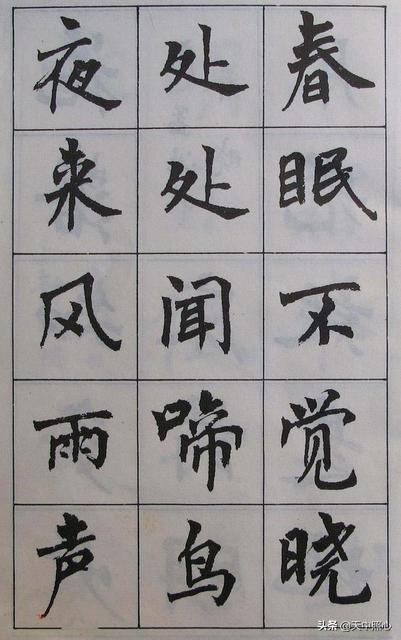 春眠不觉晓
处处闻啼鸟
夜来风雨声
头条@天中照心